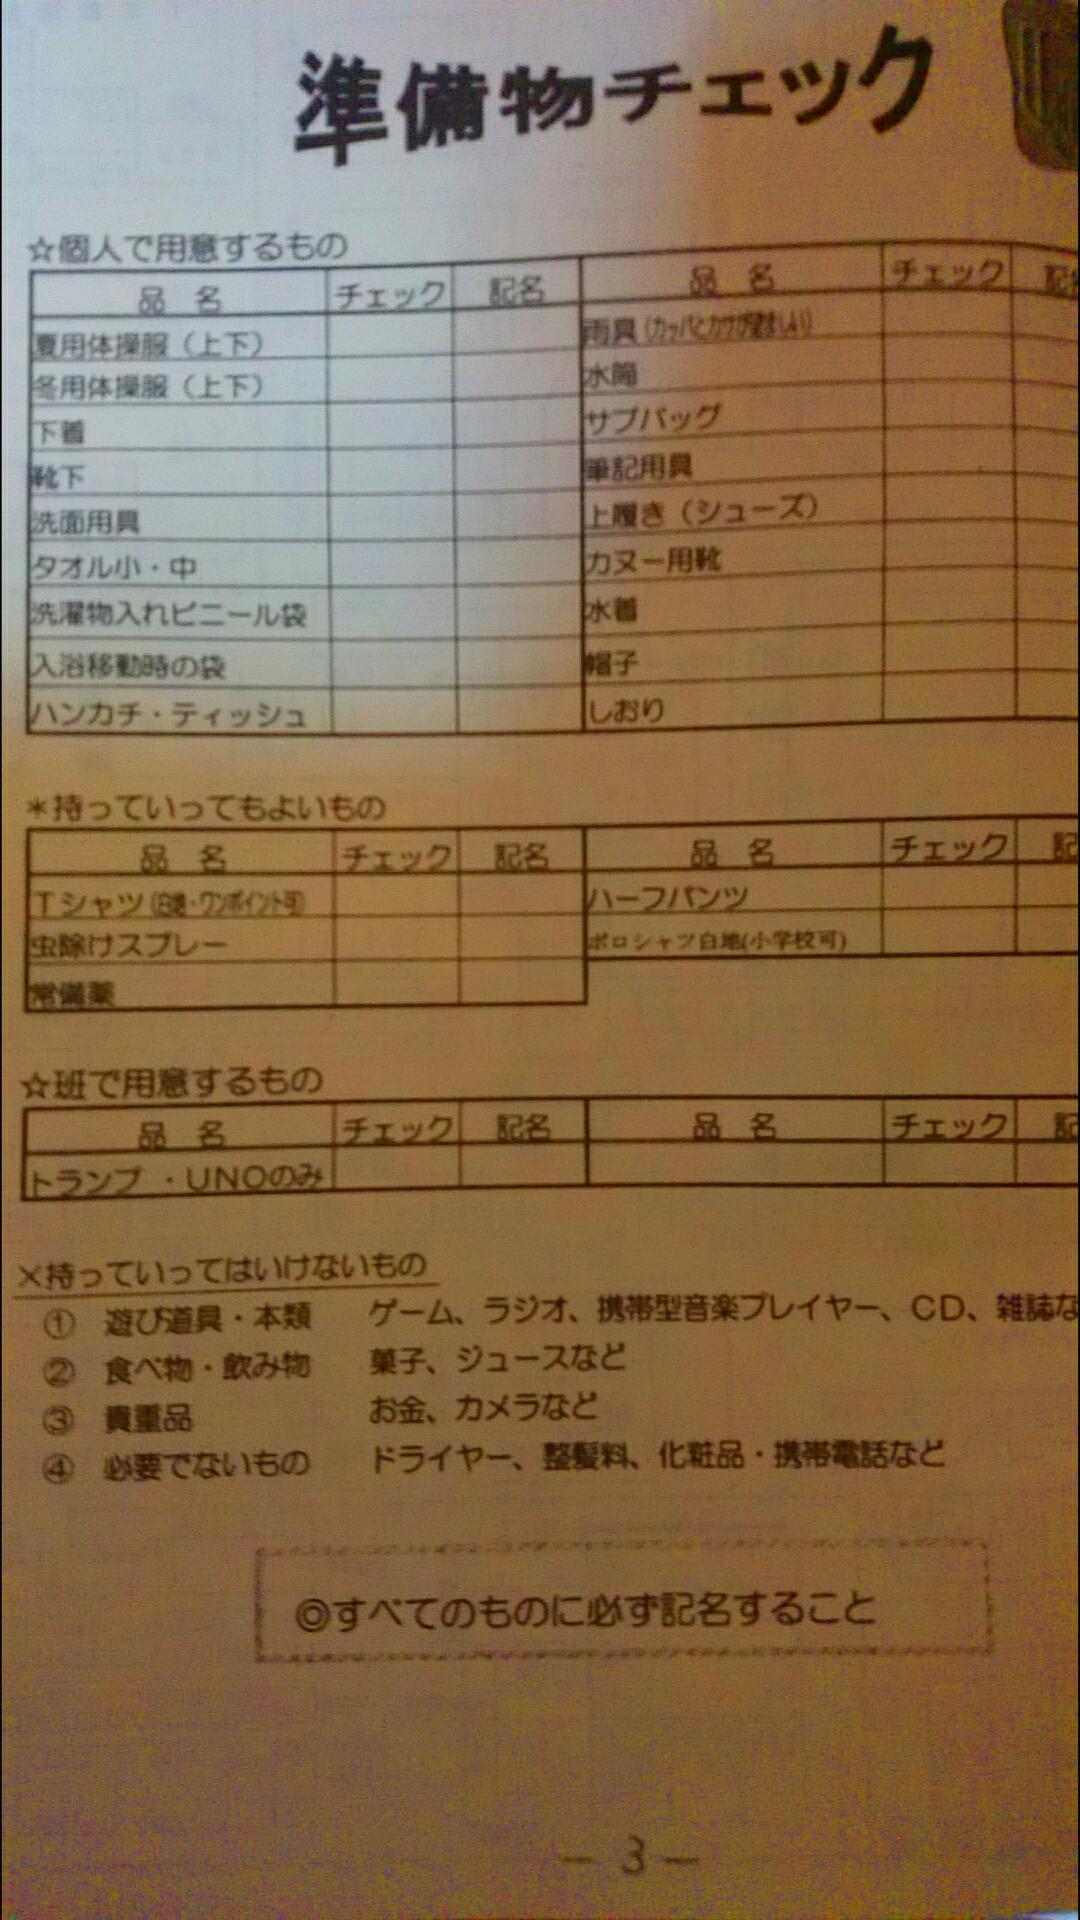 準備物チェック
☆個人で用意するもの
品 名 チェック 記名 品 名 チェック 記名
夏用体操服（上下） 雨具（カッパとカサが望ましい）
冬用体操服（上下） 水筒
下着 サブバッグ
靴下 筆記用具
洗面用具 上履き（シューズ）
タオル小・中 カヌー用靴
洗濯物入れビニール袋 水着
入浴移動時の袋 帽子
ハンカチ・ティッシュ しおり
＊持っていってもよいもの
品 名 チェック 記名 品 名 チェック 記
Ｔシャツ（白地・ワンポイント可） ハーフパンツ
虫除けスプレー ポロシャツ白地(小学校可)
常備薬
☆班で用意するもの
品 名 チェック 記名 品 名 チェック 記
トランプ ・UNOのみ
×持っていってはいけないもの
① 遊び道具・本類 ゲーム、ラジオ、携帯型音楽プレイヤー、ＣＤ、雑誌な
② 食べ物・飲み物 菓子、ジュースなど
③ 貴重品 お金、カメラなど
④ 必要でないもの ドライヤー、整髪料、化粧品・携帯電話など
◎すべてのものに必ず記名すること
－3－